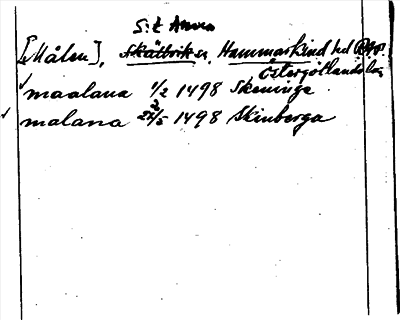 S:t Anna
[Målen], Skällvik sn, Hammarkind hd
Östergötlands län
maalana 1/2 1498 Skeninge
malana 22/5 1498 Skinberga